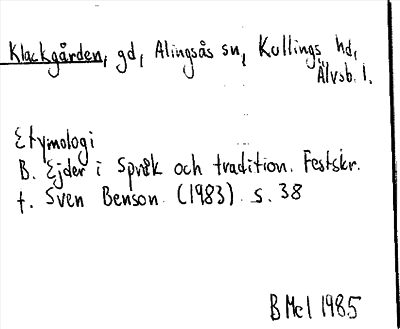 Klackgården, gd, Alingsås sn, Kullings hd,
Älvsb. l.
Etymologi
B. Ejder i Språk och tradition. Festskr.
t. Sven Benson. (1983). s. 38
B Mcl 1985